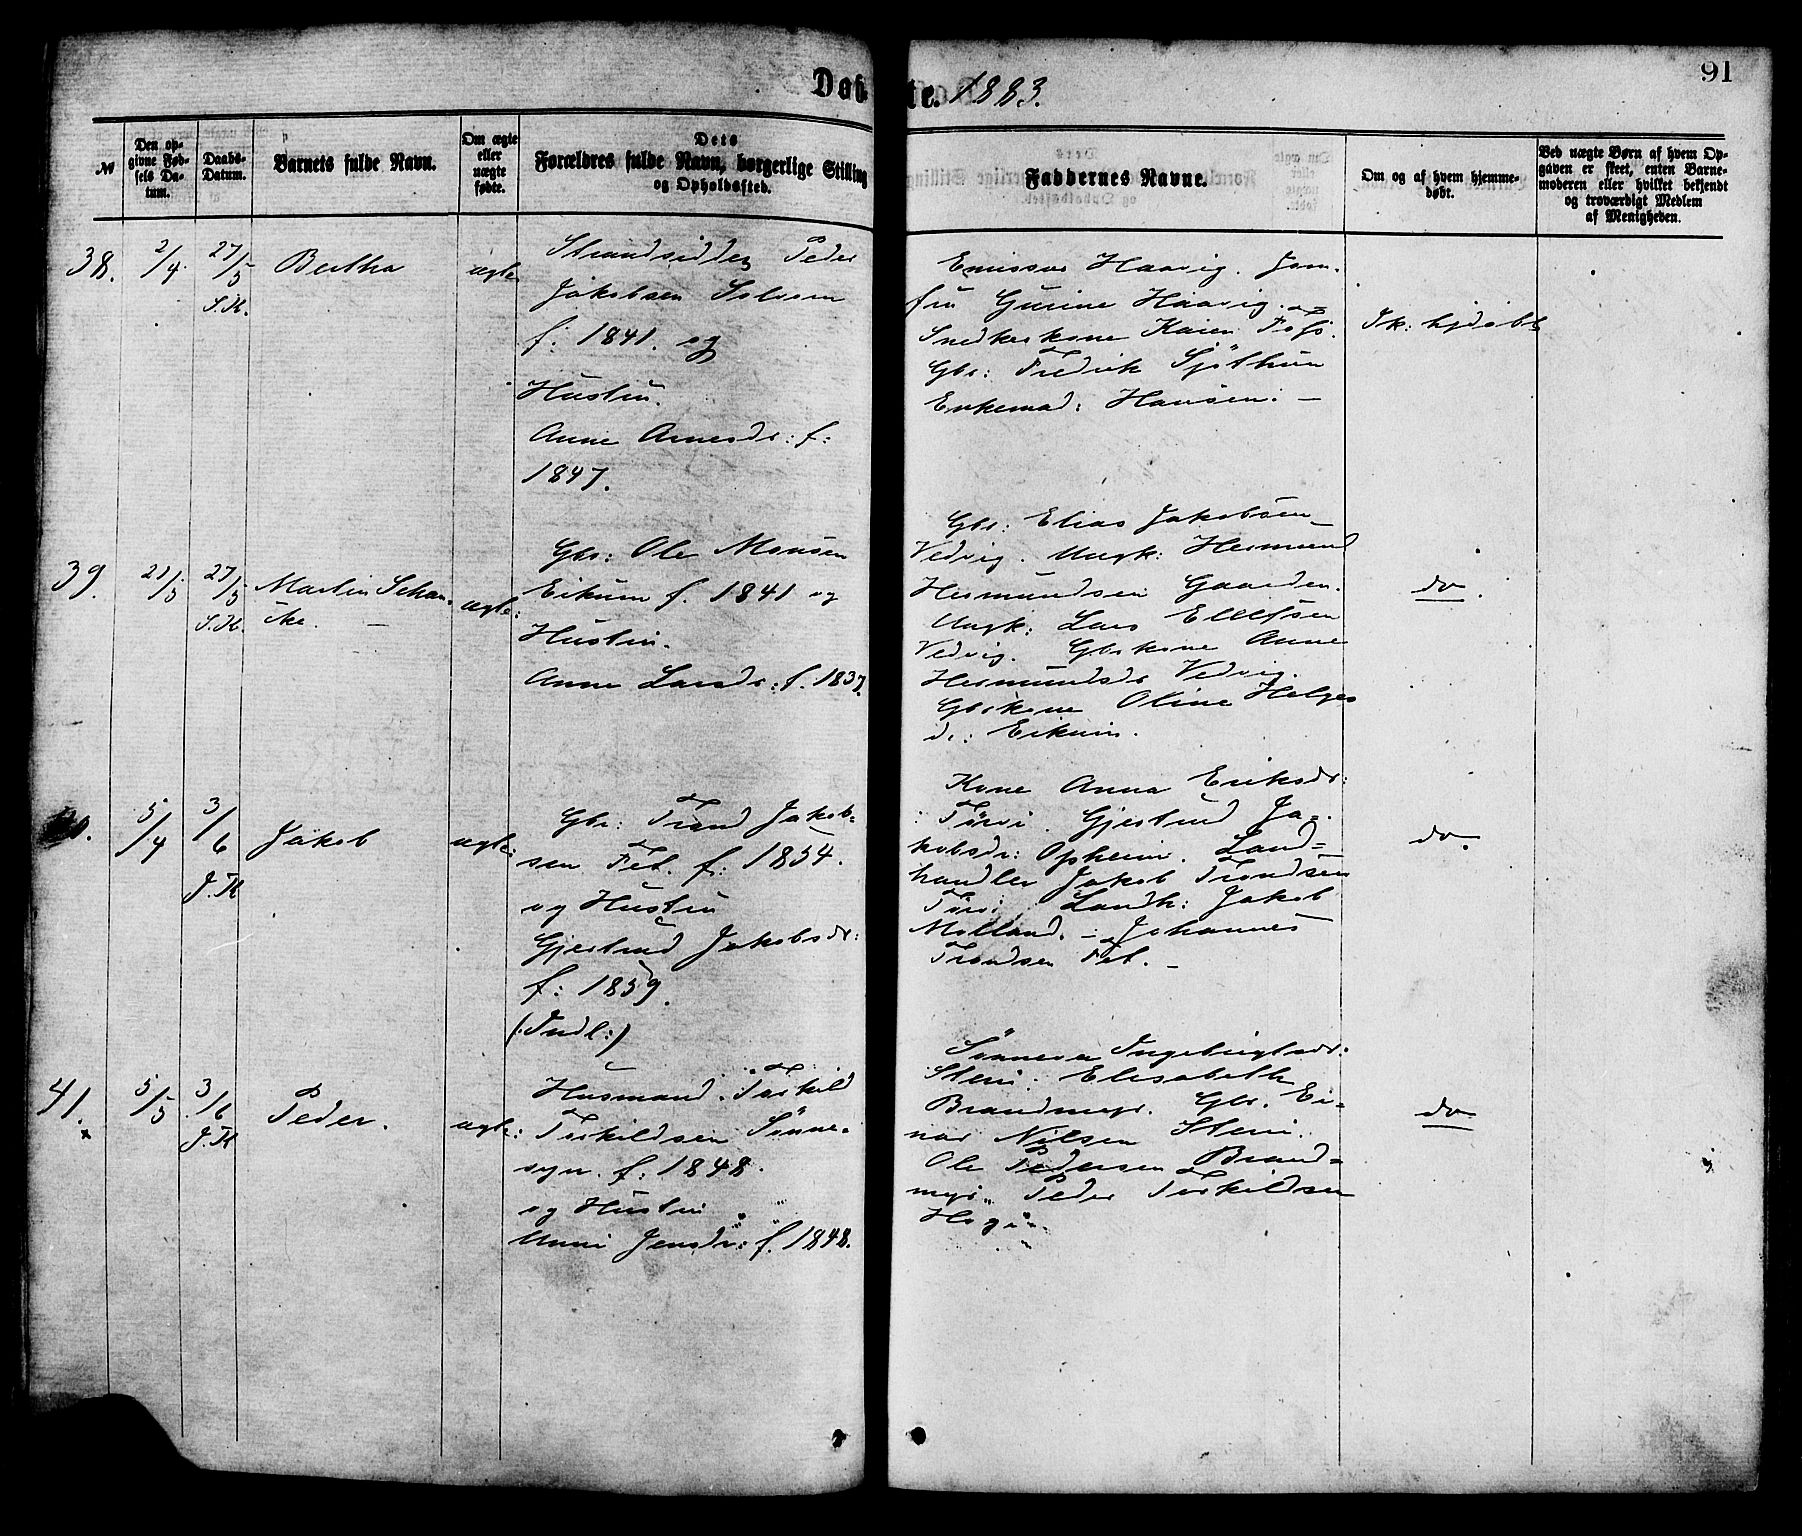 Døb
te. 1883.
91
№
Den op-
givne Fød-
sels Da-
tum.
Daabs-
Datum.
Barnets fulde Navn.
Om ægte
eller
uægte
fødte.
Dets
Forældres fulde Navn, borgerlige Stilling
og Opholdssted.
Faddernes Navne.
Om og af hvem hjemme-
døbt.
Ved uægte Børn af hvem Op-
gaven er skeet, enten Barne-
moderen eller hvilket bekjendt
og troværdigt Medlem
af Menigheden.
38.
2/4.
27/5
S.K.
Bertha
ægte
Strandsidder Peder
Jakobsen Solvorn
f: 1841. og
Hustru.
Anne Arnesdr: f:
1847.
Haavig. Jom-
fru Gurine Haavig.
Snedkerkone Karen
Gbr: Fredrik
Enkemad: Hansen. —
Sk: hjdøbt
39.
21/5
27/5
S.K.
Martin Schan-
cke. —
ægte:
Gbr: Ole Monsen
Eikum f. 1841 og
Hustru.
Anne Larsdr: f. 1837.
Gbr: Elias Jakobsen
Vedvig. Ungk: Hermund
Hermundsen Gaarden.
Ungk: Lars Ellefsen
Vedvig. Gbrkone Anne
Hermundsdr Vedvig.
Gbrkone Oline Helges
dr: Eikum.
do.
40.
5/4
3/6
J.K
Jakob
ægte:
Gbr: Trond Jakob-
sen Fet. f: 1854.
og Hustru
Gjertrud Jakobsdr:
f: 1859.
(:Indl:)
Kone Anna Eriksdr:
Gjertrud Ja-
kobsdr: Opheim. Land-
handler Jakob Trondsen
Landh: Jakob
Molland. — Johannes
Trondsen Fet. —
do.
41.
x
5/5
3/6
J.K
Peder.
ægte:
Husmand. Torkild
Torkildsen Sønne-
syn. f: 1848.
og Hustru
Unni Jensdr: f. 1848.
Sønneva Ingebrigtsdr:
Steni. Elisabeth
Brandmyr. Gbr. Ei-
nar Nilsen Steni.
Ole Pedersen Brand-
myr. Peder Torkildsen
do